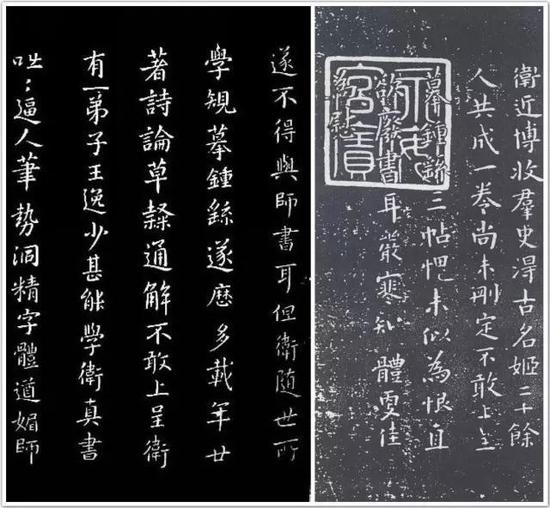 衛近博收羣史淂古名姬二十餘
人共成一卷尚未刪定不敢上呈
摹鍾繇三帖悒未似為恨自
廢書耳嚴寒知體更佳
慰
遂不得與師書耳但衛隨世所
學規摹鍾繇遂歷多載年廿
著詩論草隸通解不敢上呈衛
有一弟子王逸少甚能學衛真書
咄〻逼人筆勢洞精字體遒媚師